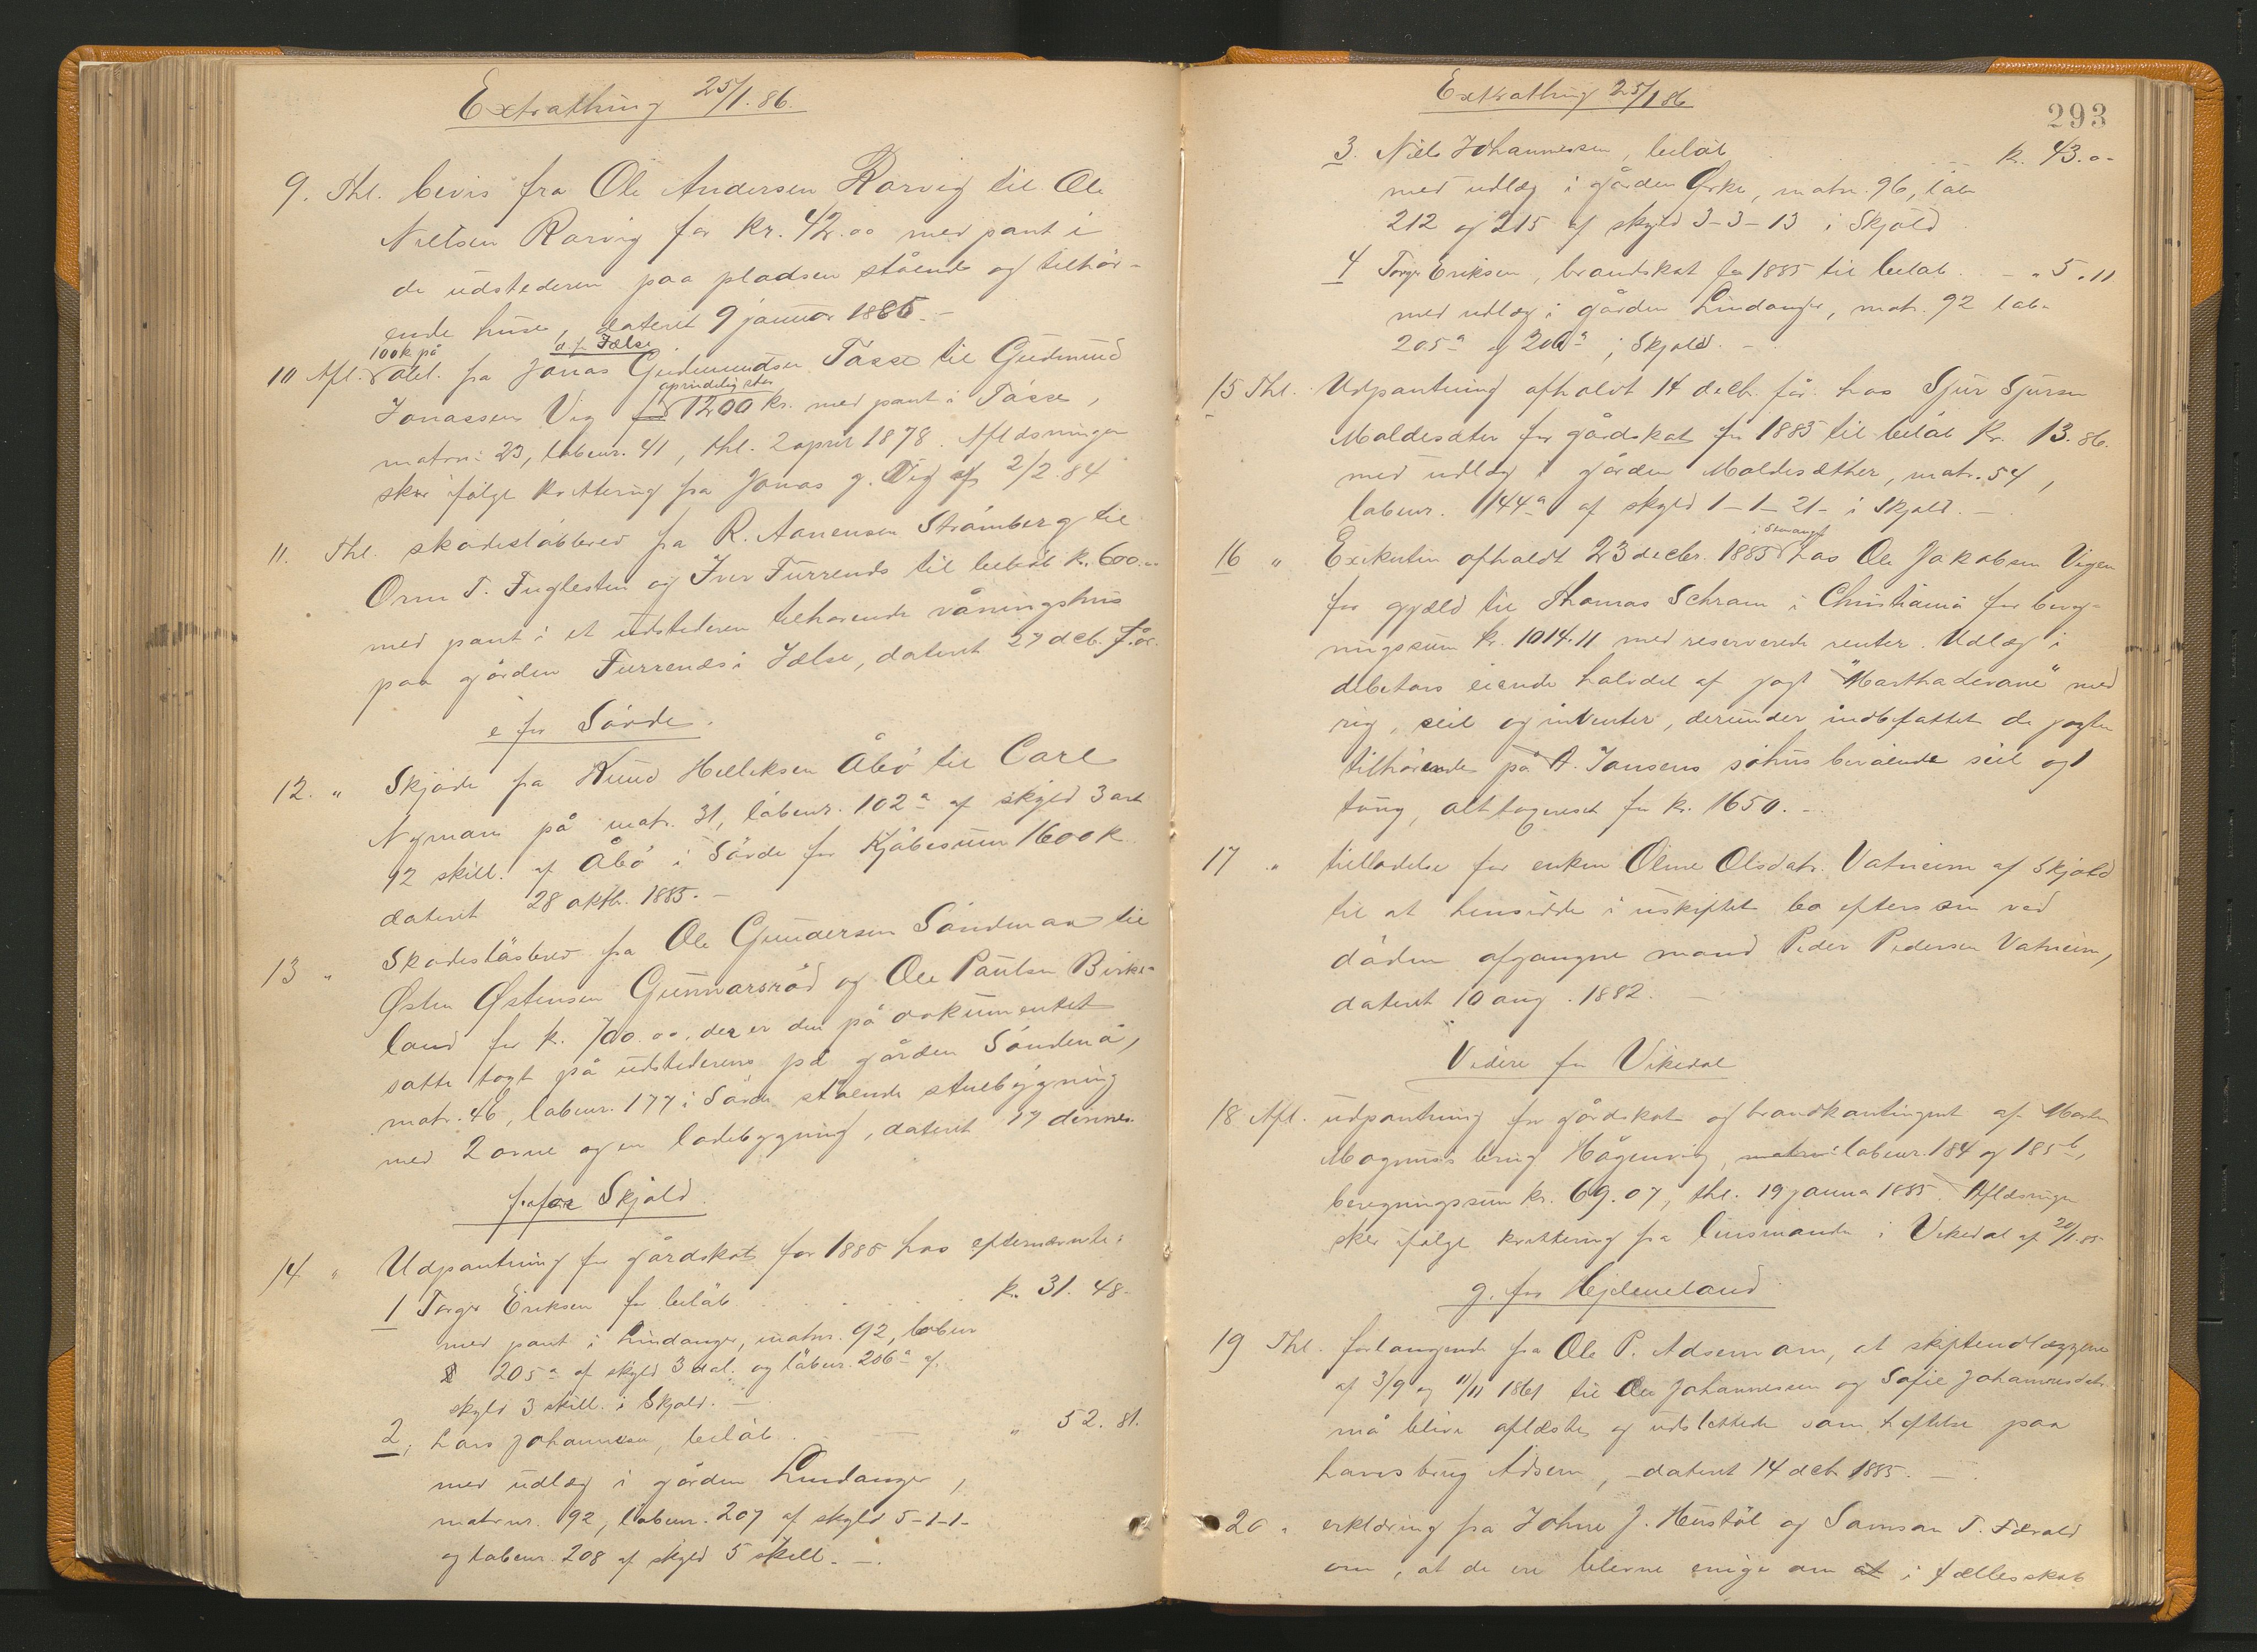 Extrathing 25/1.86.
9. Thl. bevis fra Ole Andersen Rarvig til Ole
Nielsen Rarvig for kr. 42.00 med pant i
de udstederen paa pladsen stående og tilhör-
ende huse, dateret 9 januar 1886.-
100 k på
d. f. Jælse
10 Afl. obl. fra Jonas Gudmundsen Tásse til Gudmund
oprindelig stor
Jonassen Vig for 1200 kr. med pant i Tásse,
matrn: 23, løbenr. 41, thl. 2 april 1878. Aflösningen
sker ifölge kvittering fra Jonas G. Vig af 2/2.84
11. Thl. skadeslösbrev fra R. Aanensen Strömberg til
Orm T. Fuglesten og Iver Furrenes til belöb k. 600.-
med pant i et udstederen tilhörende våningshus
paa gården Furrenæs i Jælse, dateret 27 dcb. f. år.
e for Sövde.
12. " Skjöde fra Knud Helleksen Åbö til Carl
Nyman på matr. 31, löbenr. 102a af skyld 3 ort
12 skill. af Åbö i Sövde for Kjöbesum 1600 k.
dateret 28 oktb. 1885.-
13 " Skadeslösbrev fra Ole Gundersen Söndenaa til
Østen Østensen Gunnarsröd og Ole Paulsen Birke-
land for k. 700.00, der er den på dokumentet
satte togt på udstederens på gården Söndenå,
matr. 46, löbenr. 177 i Sövde stående stuebygning
med 2 ovne og en ladebygning, dateret 17 dennes.
f. for Skjold.
14 " Udpantning for gårdskat for 1885 hos efternævnte:
1 Torger Eriksen for belöb k. 31.48-
med pant i Lindanger, matnr. 92, löbenr
205a af skyld 3 dal. og löbenr. 206a af
skyld 3 skill. i Skjold. -
2, Lars Johannesen, belöb " 52.81.
med udlæg i gården Lindanger,
matrnr. 92, löbenr. 207 af skyld 5-1-1-
og löbenr. 208 af skyld 5 skill. -.
Extrathing 25/1 86
293
3. Niels Johannessen, belöb k. 43.0-
med udlæg i gården Grke, matn. 96, löb
212 og 215 af skyld 3-3-13 i Skjold
4 Torger Eriksen, brandskat for 1885 til belöb. - " 5.11
med udlæg i gården Lindanger, matr. 92 löb-
205a og 206a i Skjold. -
15 Thl. Udpantning afholdt 14 decb. f. år. hos Sjur Sjursen
Moldesæter for gårdskat for 1885 til belöb Kr. 13.86.
med udlæg i gården Moldesæther, matr. 54,
löbenr. 144a af skyld 1-1-21- i Skjold. -
i Stavanger
16 " Exikution afholdt 23 decbr. 1885 hos Ole Jakobsen Vigen
for gjæld til Thomas Schram i Christiania for bereg-
ningssum Kr. 1014.11 med reserverede renter. Udlæg i
debitors eiende halvdel af jagt "Martha Levare" med
rig, seil og inventar, derunder indbefattet de jagten
tilhörende på A. Jansens söhus beroende seil og
toug, alt taxeret for kr. 1650. -
17 " tilladelse for enken Oline Olsdatr. Vatneim af Skjold
til at hensidde i uskiftet bo efter sin ved
döden afgangne mand Peder Pedersen Vatneim,
dateret 10 aug. 1882. -
Videre for Vikedal
18 Afl. udpantning for gårdskat og brandkontingent af Marthe
Magnus's brug Hågenvig, matrn: löbenr. 184 og 185b,
beregningssum kr. 69.07, thl. 19 januar 1885. Aflösningen
sker ifölge kvittering fra lensmanden i Vikedal af 20/1.85
g. for Hjelmeland
19 Thl. forlangende fra Ole P. Adsen om, at skifteudlæggene
af 3/9 og 11/11 1861 til Ole Johannessen og Sofie Johannesdatr.
må blive aflæste og udslettede som heftelse paa
hans brug Adsen, dateret 14 dcb. 1885. -
20 " erklæring fra Johne J. Hustöl og Samson T. Fævold
om, at de ere blevne enige om at i fællesskab